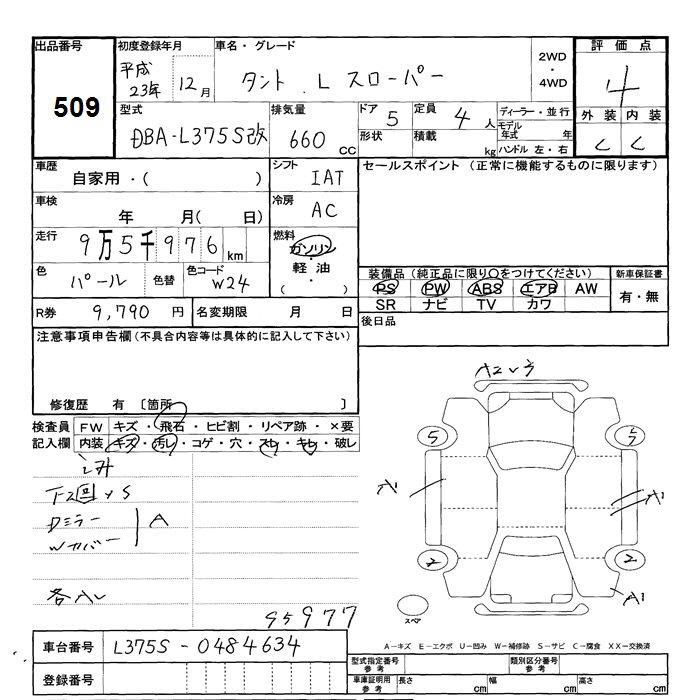 出品番号 初度登録年月 車名・グレード 評価点
509
平成 23年 12月 タント L スローパー 2WD・4WD 4
型式 排気量 ドア 5 定員 4人 ディーラー・並行 外装 内装
DBA-L375S改 660cc 形状 積載 kg モデル年式 年 C C
ハンドル 左・右
車歴 自家用・( ) シフト IAT セールスポイント (正常に機能するものに限ります)
車検 年 月( 日) 冷房 AC
走行 9万5千976km 燃料 ガソリン・軽油・( )
色 パール 色替 色コード W24
装備品(純正品に限り○をつけてください) 新車保証書
PS PW ABS エアB AW 有・無
SR ナビ TV カワ
R券 9,790円 名変期限 月 日 後日品
注意事項申告欄(不具合内容等は具体的に記入して下さい)
修復歴 有 〔箇所 〕
検査員 FW キズ・飛石・ヒビ割・リペア跡・×要
記入欄 内装 キズ・汚レ・コゲ・穴・スレ・キレ・破レ
A2
5
A1
A1
2 2
Dミラー
Wカバー A
各AL
A1
スペア
95977
A-キズ E-エクボ U-凹み W-補修跡 S-サビ C-腐食 XX-交換済
車台番号 L375S-0484634
登録番号
型式指定番号 参考 類別区分番号 参考
車庫証明用 参考 長さ cm 幅 cm 高さ cm